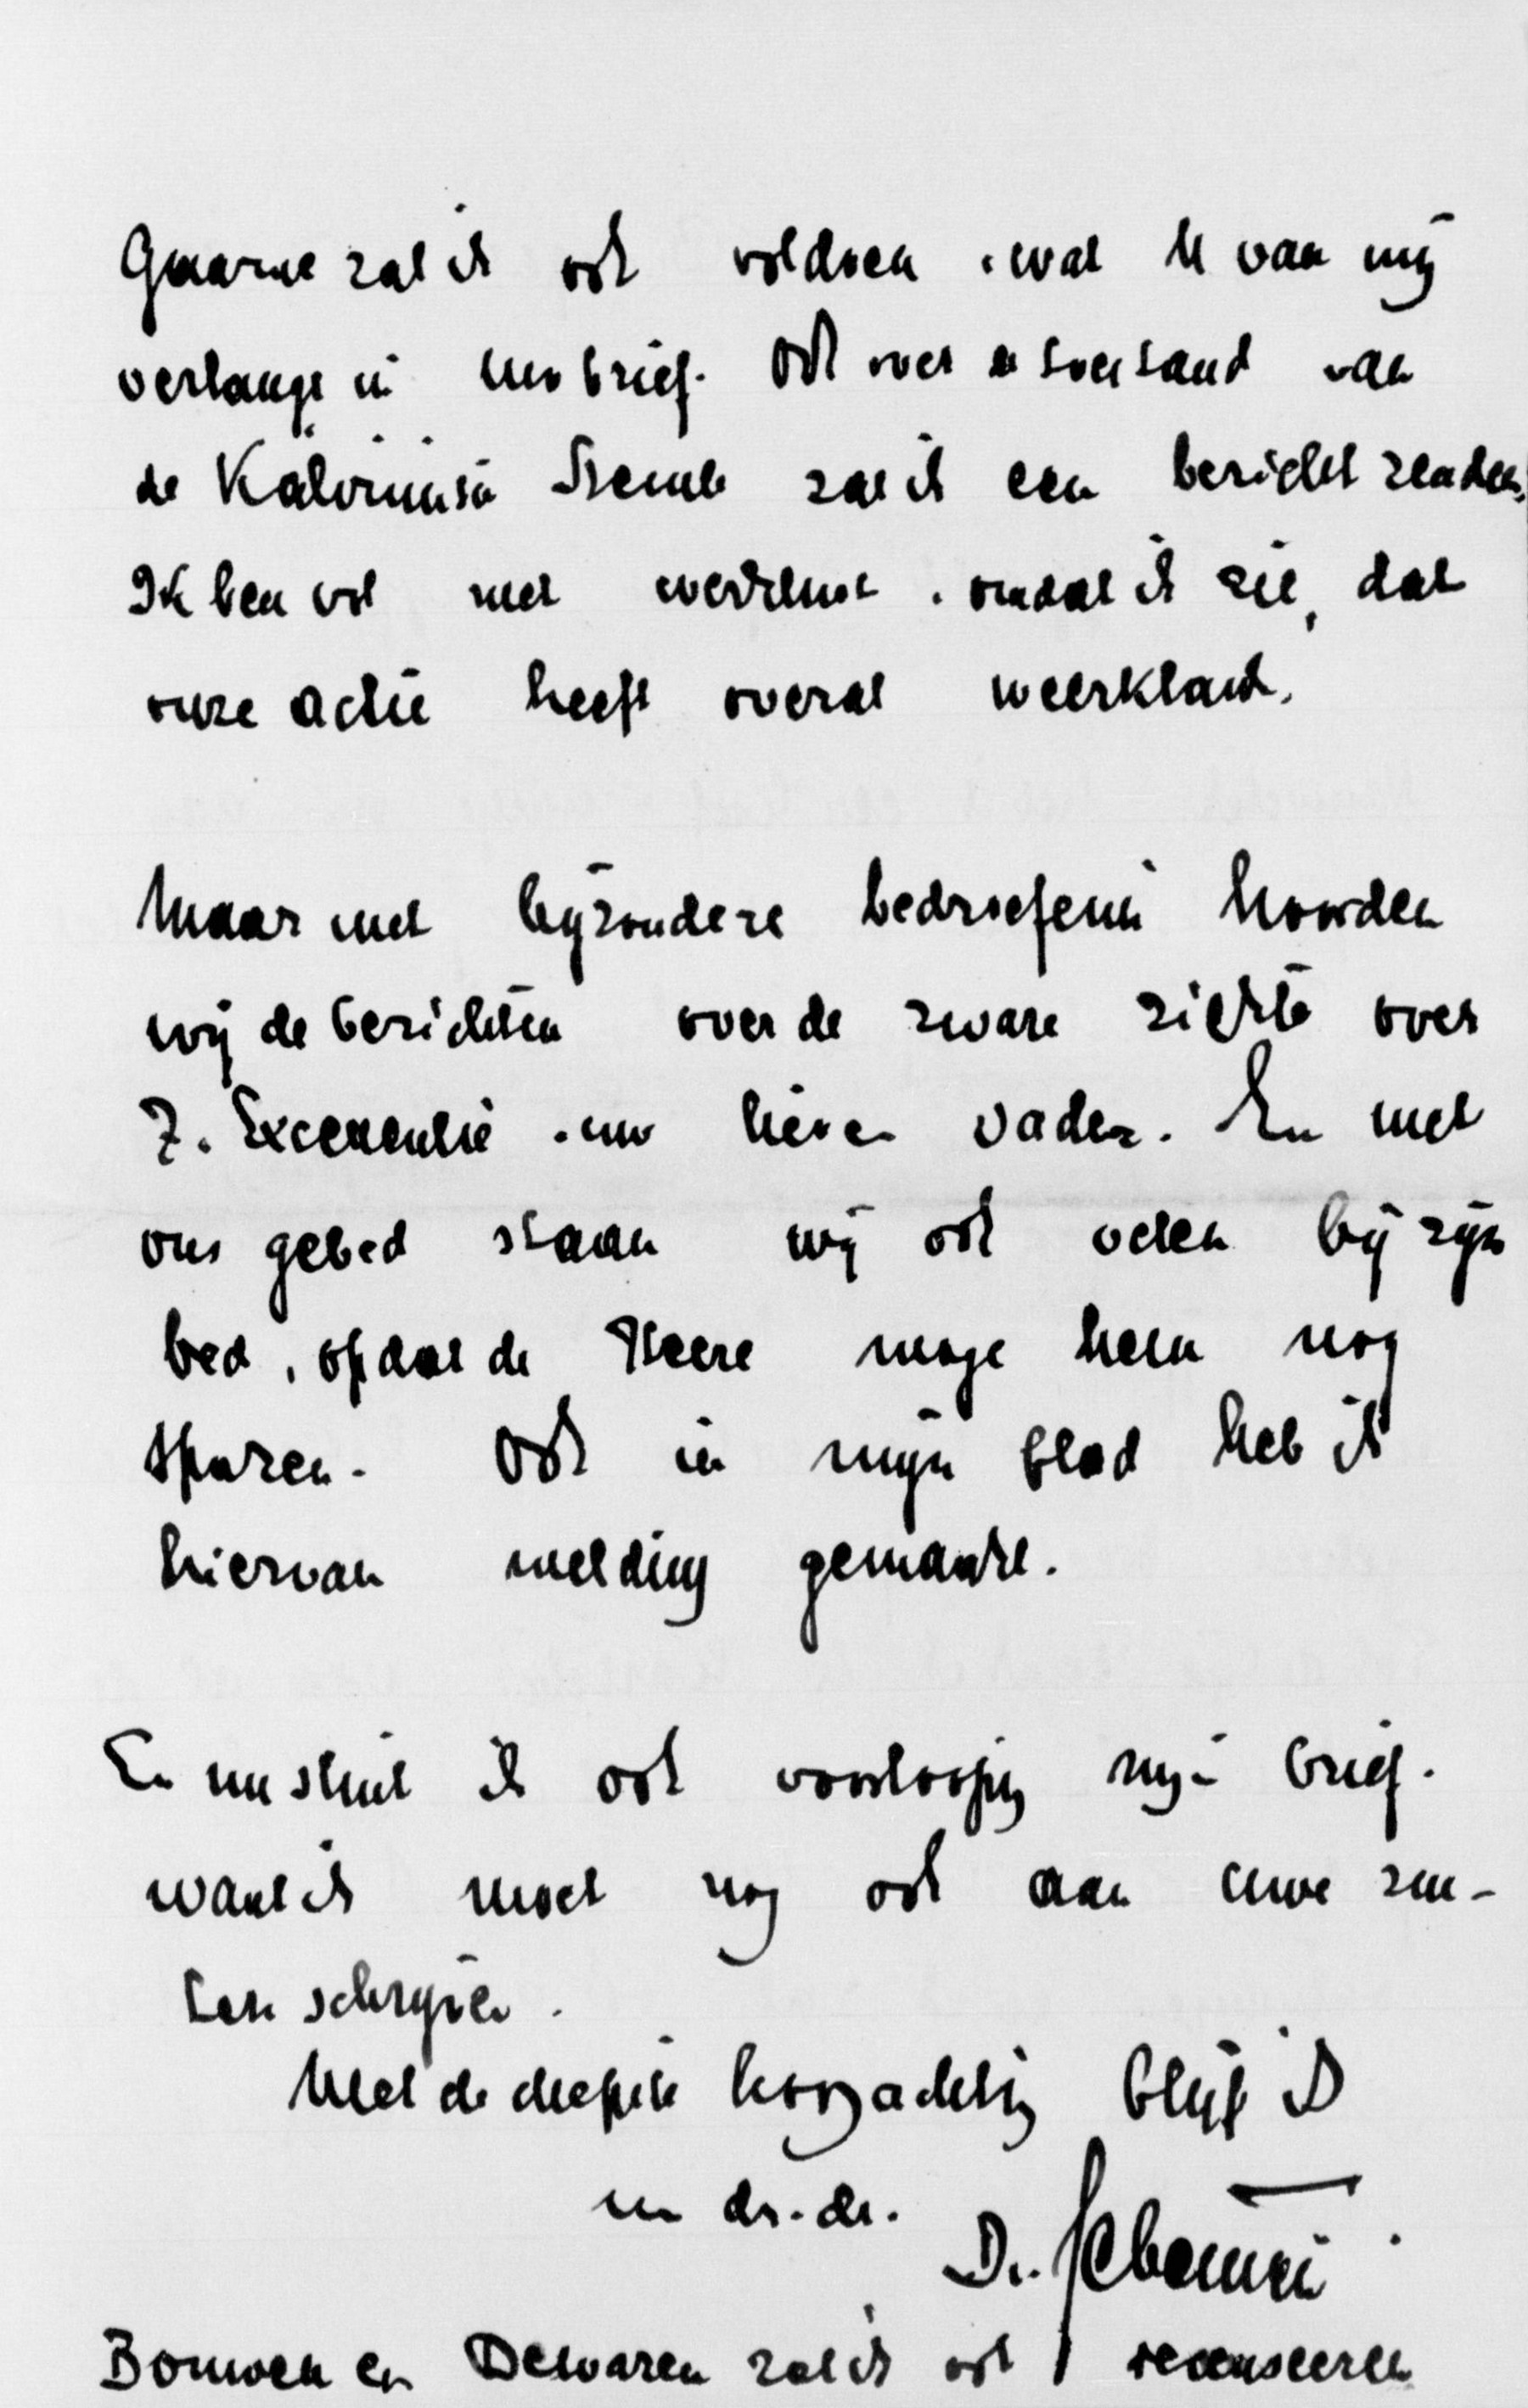 Gaarne zal ik ook voldoen wat U van mij
verlangt in uw brief. Ook over toestand van
de Kálvinista Szemle zal ik een bericht zenden.
Ik ben vol met werklust, omdat ik zie, dat
onze actie heeft overal weerklank.
Maar met bijzondere bedroefenis hoorden
wij de berichten over de zware ziekte over
Z. Excellentie uw lieve vader. En met
ons gebed staan wij ook velen bij zijn
bed, opdat de Heere moge hem nog
sparen. Ook in mijn blad heb ik
hiervan melding gemaakt.
En nu sluit ik ook voorloopig mijn brief.
want ik moet nog ook aan uwe zus-
ters schrijven.
Met de diepste hoogachting blijf ik
uw dr. dr.
Dr. Sebestyén
Bouwen en Bewaren zal ik ook recenseeren